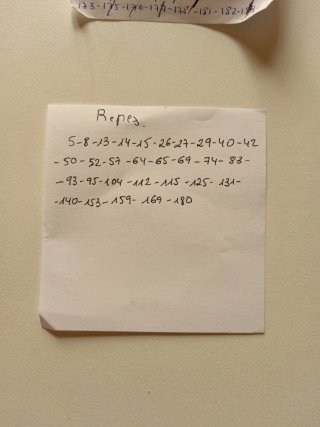 173-175-176-177-178-181-182-184
Repes.
5-8-13-14-15-26-27-29-40-42
-50-52-57-64-65-69-74-83-
-93-95-104-112-115-125-131-
-140-153-159-169-180